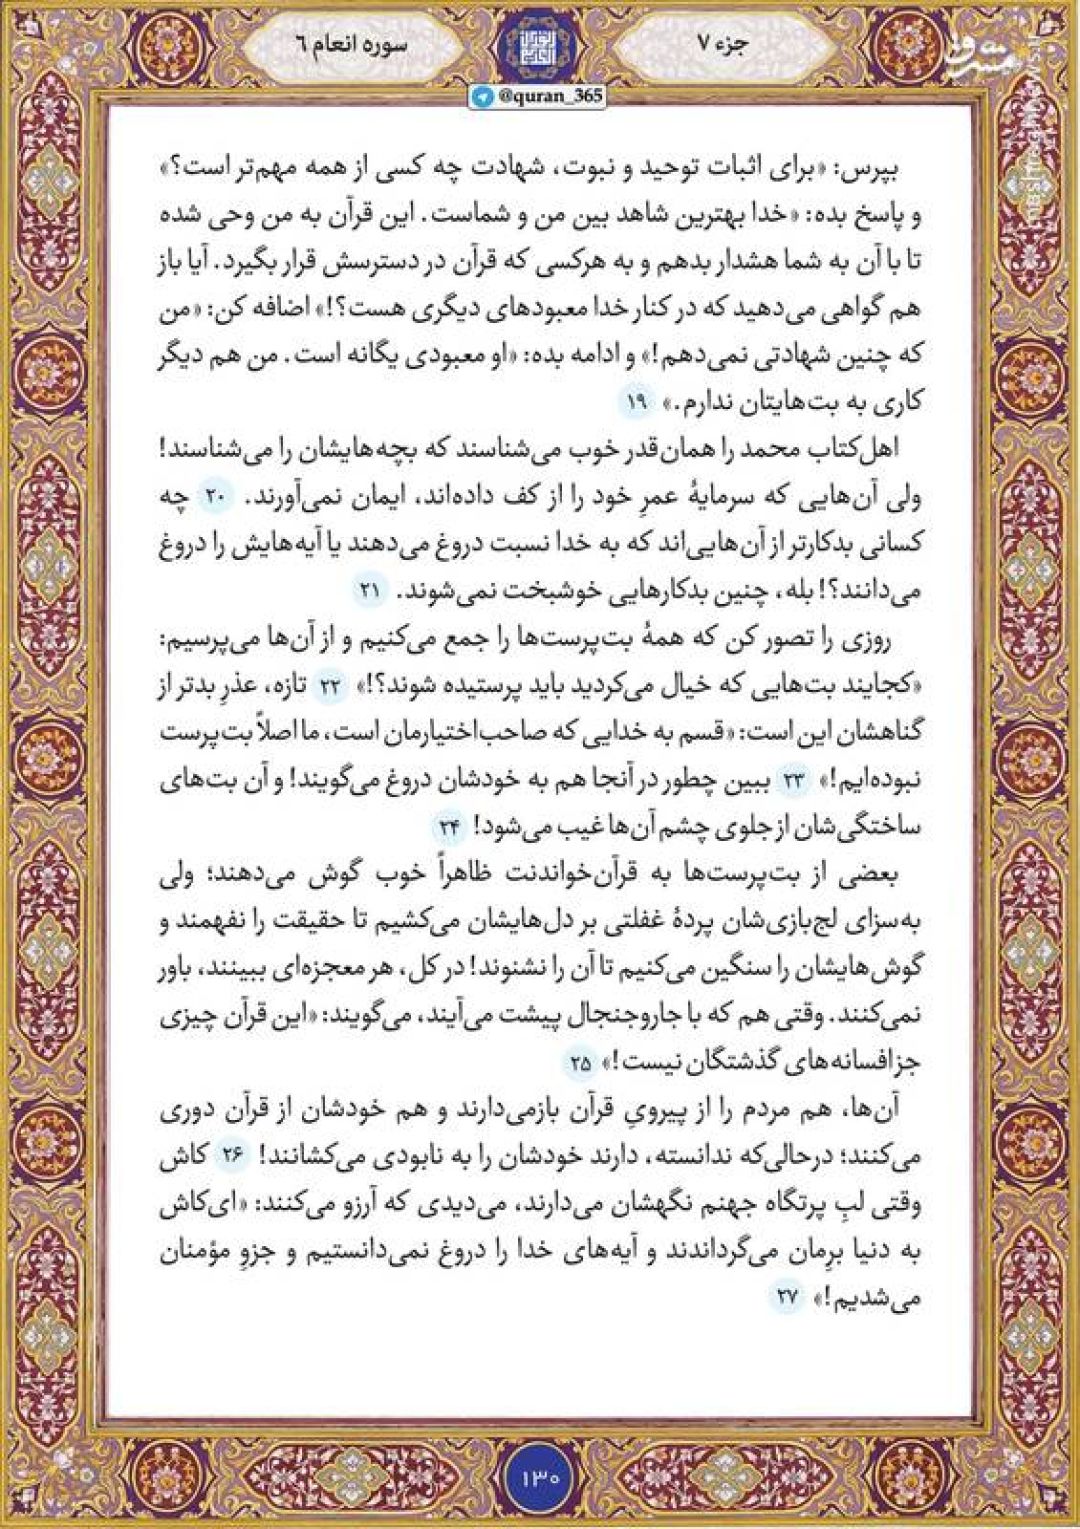 جزء ۷
سوره انعام ۶
@quran_365
مشرق
بپرس: «برای اثبات توحید و نبوت، شهادت چه کسی از همه مهم‌تر است؟»
و پاسخ بده: «خدا بهترین شاهد بین من و شماست. این قرآن به من وحی شده
تا با آن به شما هشدار بدهم و به هرکسی که قرآن در دسترسش قرار بگیرد. آیا باز
هم گواهی می‌دهید که در کنار خدا معبودهای دیگری هست؟!» اضافه کن: «من
که چنین شهادتی نمی‌دهم!» و ادامه بده: «او معبودی یگانه است. من هم دیگر
کاری به بت‌هایتان ندارم.» ۱۹
اهل‌کتاب محمد را همان‌قدر خوب می‌شناسند که بچه‌هایشان را می‌شناسند!
ولی آن‌هایی که سرمایهٔ عمرِ خود را از کف داده‌اند، ایمان نمی‌آورند. ۲۰ چه
کسانی بدکارتر از آن‌هایی‌اند که به خدا نسبت دروغ می‌دهند یا آیه‌هایش را دروغ
می‌دانند؟! بله، چنین بدکارهایی خوشبخت نمی‌شوند. ۲۱
روزی را تصور کن که همهٔ بت‌پرست‌ها را جمع می‌کنیم و از آن‌ها می‌پرسیم:
«کجایند بت‌هایی که خیال می‌کردید باید پرستیده شوند؟!» ۲۲ تازه، عذرِ بدتر از
گناهشان این است: «قسم به خدایی که صاحب‌اختیارمان است، ما اصلاً بت‌پرست
نبوده‌ایم!» ۲۳ ببین چطور در آنجا هم به خودشان دروغ می‌گویند! و آن بت‌های
ساختگی‌شان از جلوی چشم آن‌ها غیب می‌شود! ۲۴
بعضی از بت‌پرست‌ها به قرآن‌خواندنت ظاهراً خوب گوش می‌دهند؛ ولی
به‌سزای لج‌بازی‌شان پردهٔ غفلتی بر دل‌هایشان می‌کشیم تا حقیقت را نفهمند و
گوش‌هایشان را سنگین می‌کنیم تا آن را نشنوند! در کل، هر معجزه‌ای ببینند، باور
نمی‌کنند. وقتی هم که با جاروجنجال پیشت می‌آیند، می‌گویند: «این قرآن چیزی
جز افسانه‌های گذشتگان نیست!» ۲۵
آن‌ها، هم مردم را از پیرویِ قرآن بازمی‌دارند و هم خودشان از قرآن دوری
می‌کنند؛ درحالی‌که ندانسته، دارند خودشان را به نابودی می‌کشانند! ۲۶ کاش
وقتی لبِ پرتگاه جهنم نگهشان می‌دارند، می‌دیدی که آرزو می‌کنند: «ای‌کاش
به دنیا برِمان می‌گرداندند و آیه‌های خدا را دروغ نمی‌دانستیم و جزوِ مؤمنان
می‌شدیم!» ۲۷
۱۳۰